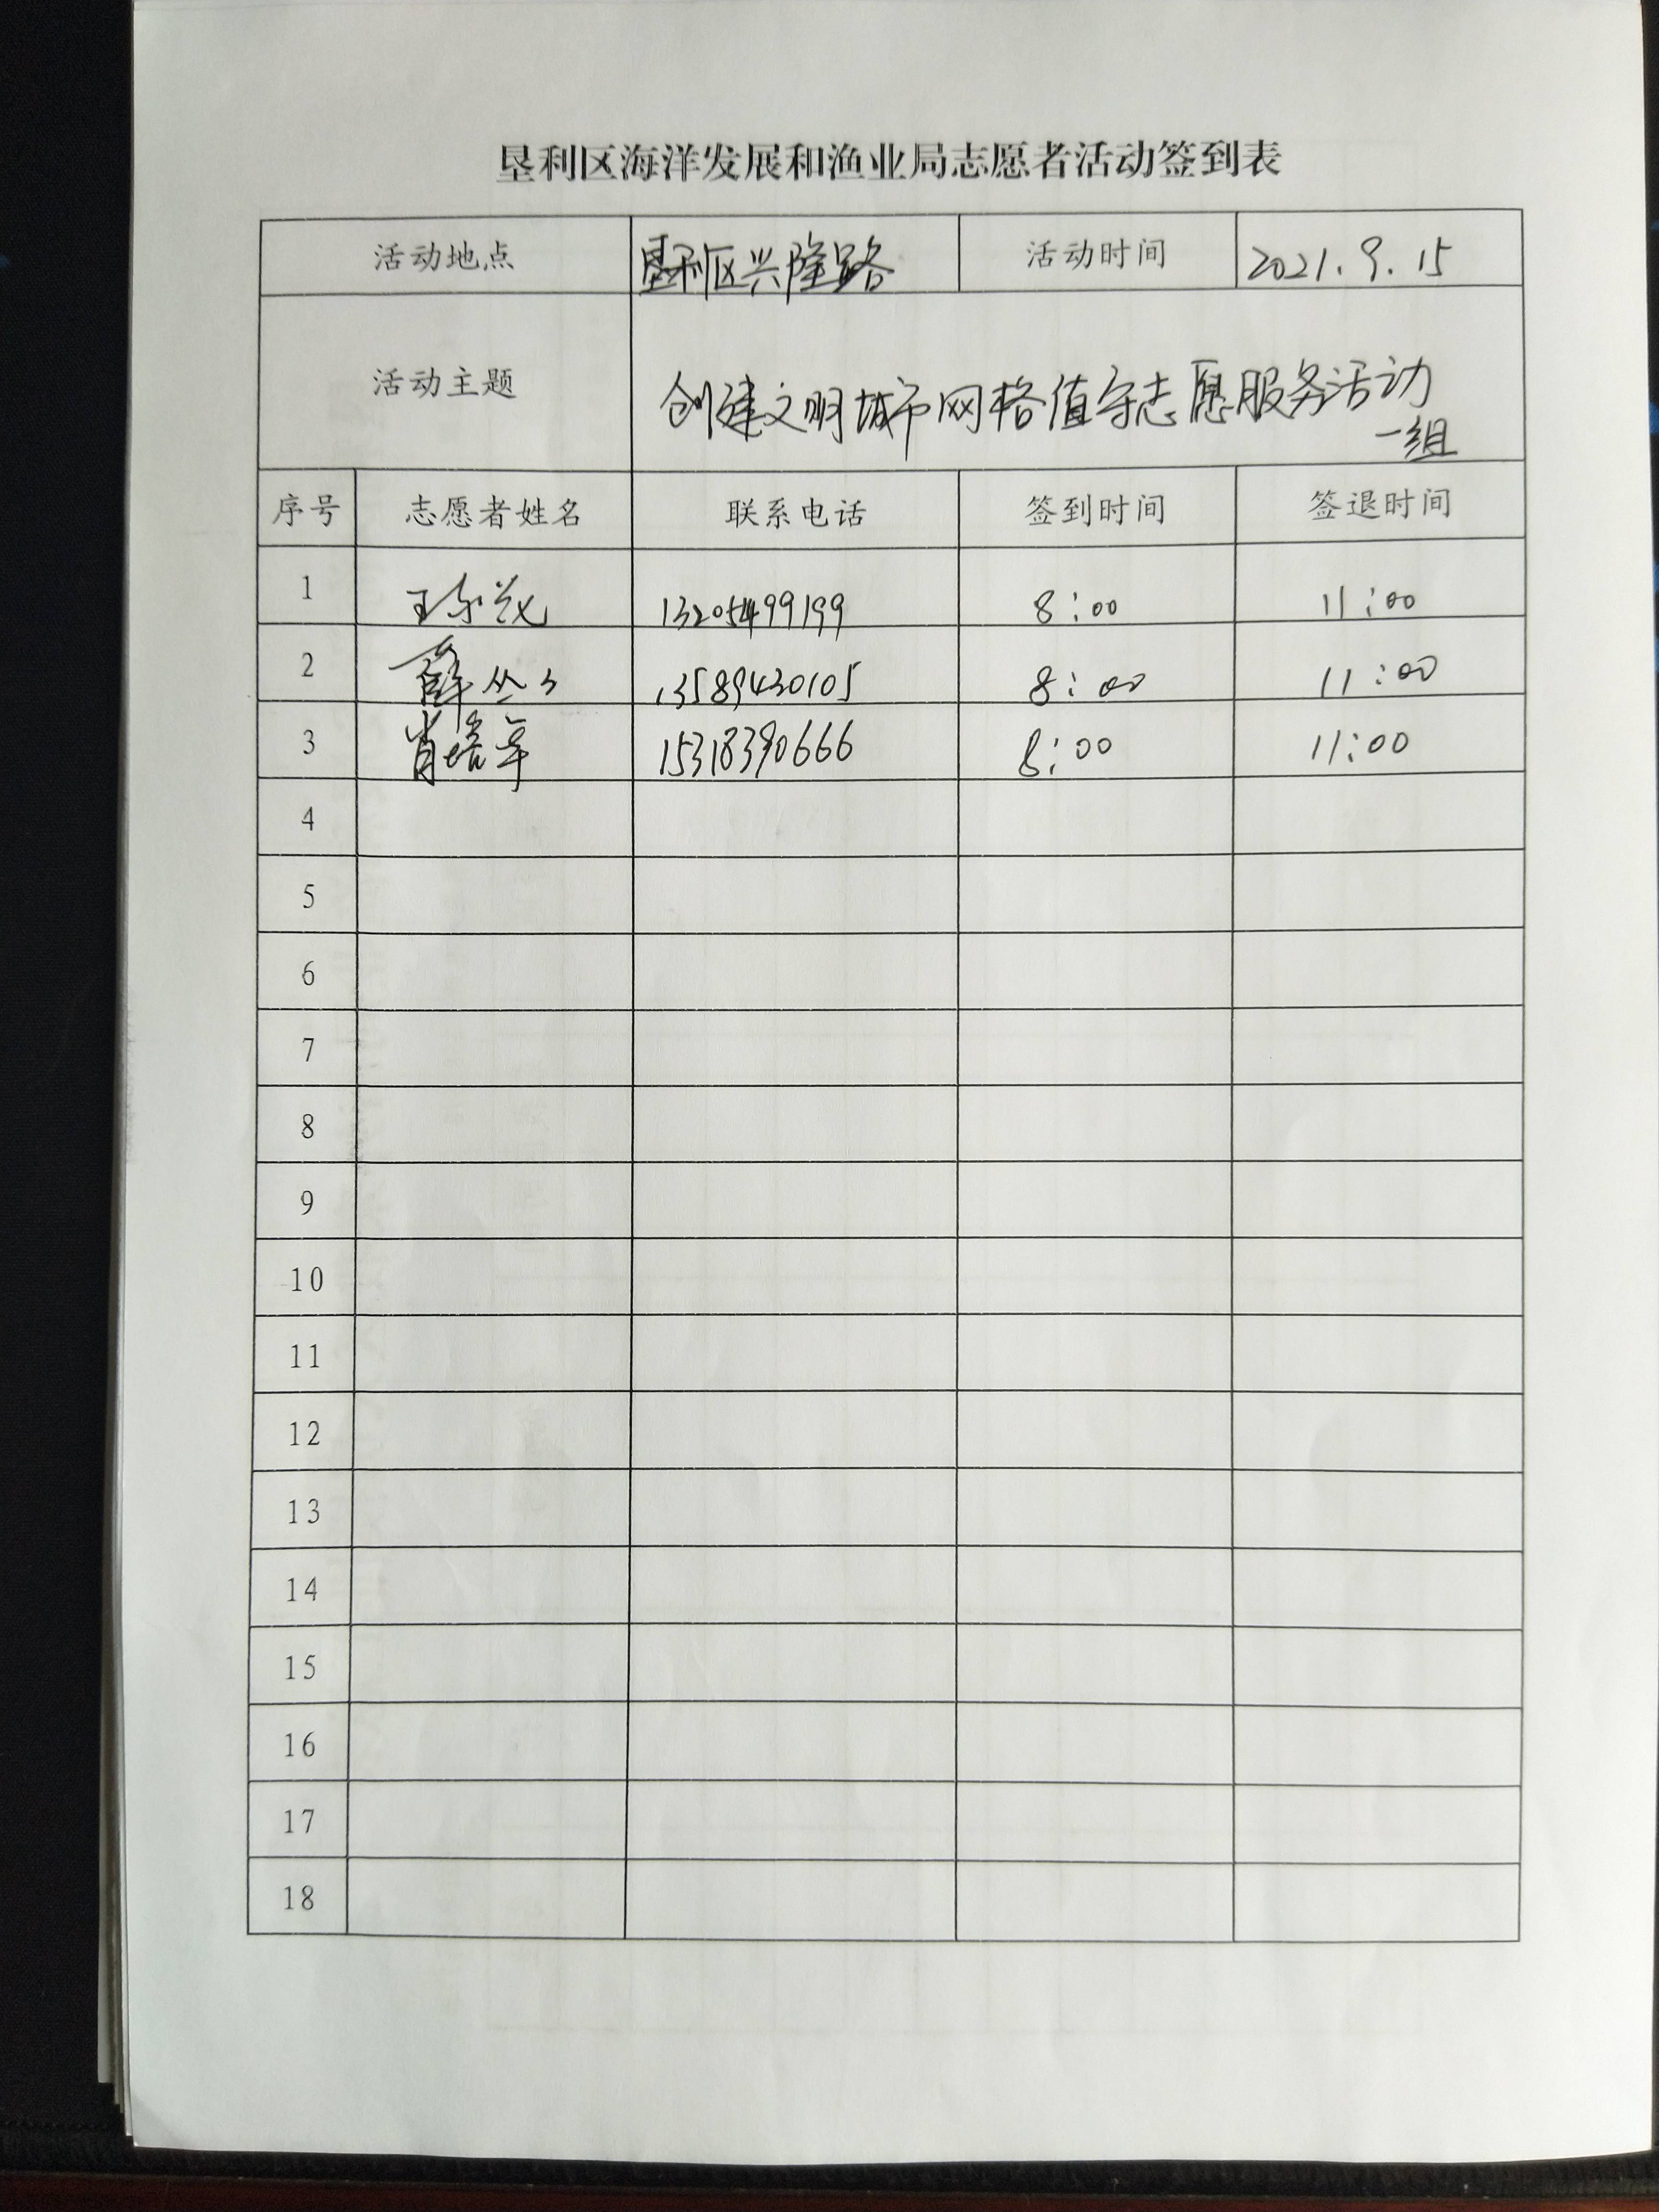 垦利区海洋发展和渔业局志愿者活动签到表
活动地点 垦利区兴隆路 活动时间 2021.9.15
活动主题 创建文明城市网格值守志愿服务活动
一组
序号 志愿者姓名 联系电话 签到时间 签退时间
1 王 13205499199 8:00 11:00
2 薛丛丛 13589430105 8:00 11:00
3 肖培军 15318390666 8:00 11:00
4
5
6
7
8
9
10
11
12
13
14
15
16
17
18